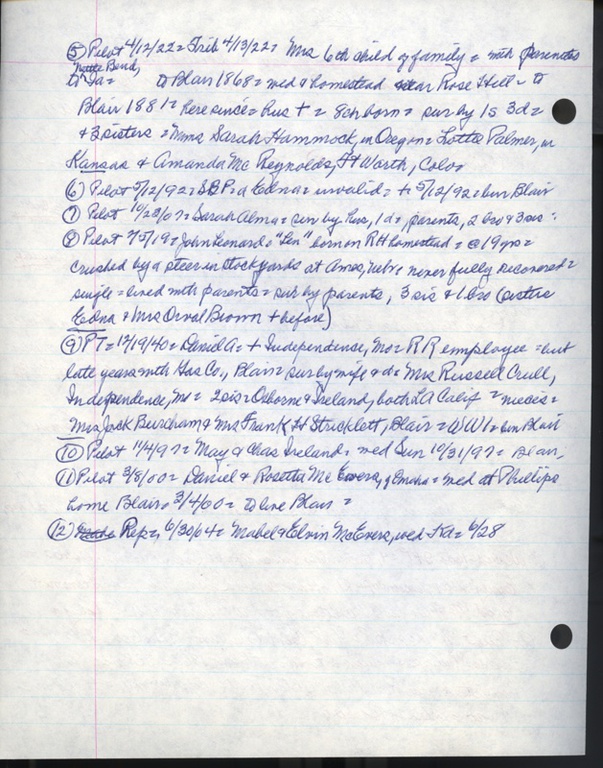 ⑤ Pilot 4/12/22 = Trib 4/13/22 = Mrs 6th child of family = with parents
Bend,
to Ia = to Blair 1868 = wed & homestead near Rose Hill = to
Blair 1881 = here since = hus + = 8 ch born = sur by 1s 3d =
& 3 sisters = Mmes Sarah Hammock, in Oregon = Lottie Palmer, in
Kansas & Amanda Mc Reynolds, Ft Worth, Colo =
⑥ Pilot 5/12/92 = = d Edna = invalid = + 5/12/92 = bur Blair
⑦ Pilot = Sarah Alma = sur by hus, 1 d = parents, 2 bro & 3 sis =
⑧ Pilot = John Leonard = "Len" born on RH homestead = @ 19 yrs =
crushed by a steer in stockyards at Ames, never fully recovered =
single = lived with parents = sur by parents, 3 sis & 1 bro (sisters
Edna & Mrs Orval Brown + before)
⑨ PT = 12/19/40 = Daniel A = + Independence, Mo = RR employee = but
late years with Gas Co., Blair = sur by wife & d = Mrs Russell Crull,
Independence, Mo = 2 sis = Osborne & Ireland, both LA Calif = nieces =
Mrs Jack Burcham & Mrs Frank H Stricklett, Blair = WW1 = bur Blair
⑩ Pilot 11/4/97 = May & Chas Ireland = wed Sun 10/31/97 = Blair,
⑪ Pilot 3/8/00 = Daniel & Rosetta Mc Evers, of Omaha = wed at Phillips
home Blair = 3/4/00 = to live Blair =
⑫ Rep = 6/30/04 = Mabel & Elvin McEvers, wed = 6/28